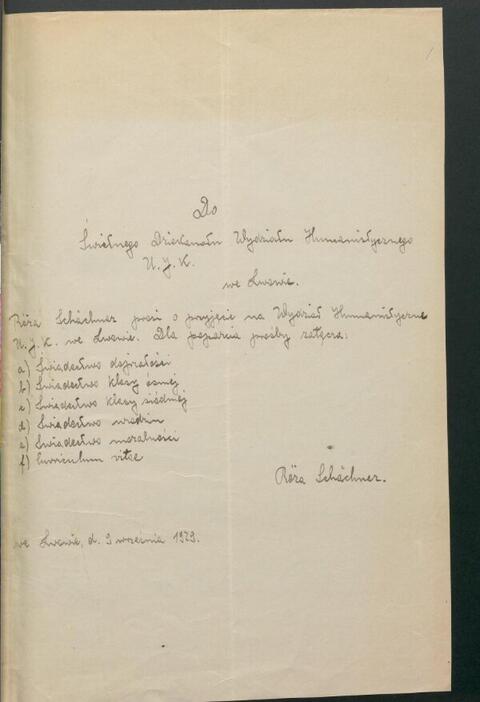 Do
Świetnego Dziekanatu Wydziału Humanistycznego
U. J. K.
we Lwowie.
Róża Schächner prosi o przyjęcie na Wydział Humanistyczny
U. J. K. we Lwowie. Dla poparcia prośby załącza:
a) Świadectwo dojrzałości
b) Świadectwo klasy ósmej
c) Świadectwo klasy siódmej
d) Świadectwo urodzin
e) Świadectwo moralności
f) Curriculum vitae
Róża Schächner.
we Lwowie, d. 9 września 1929.